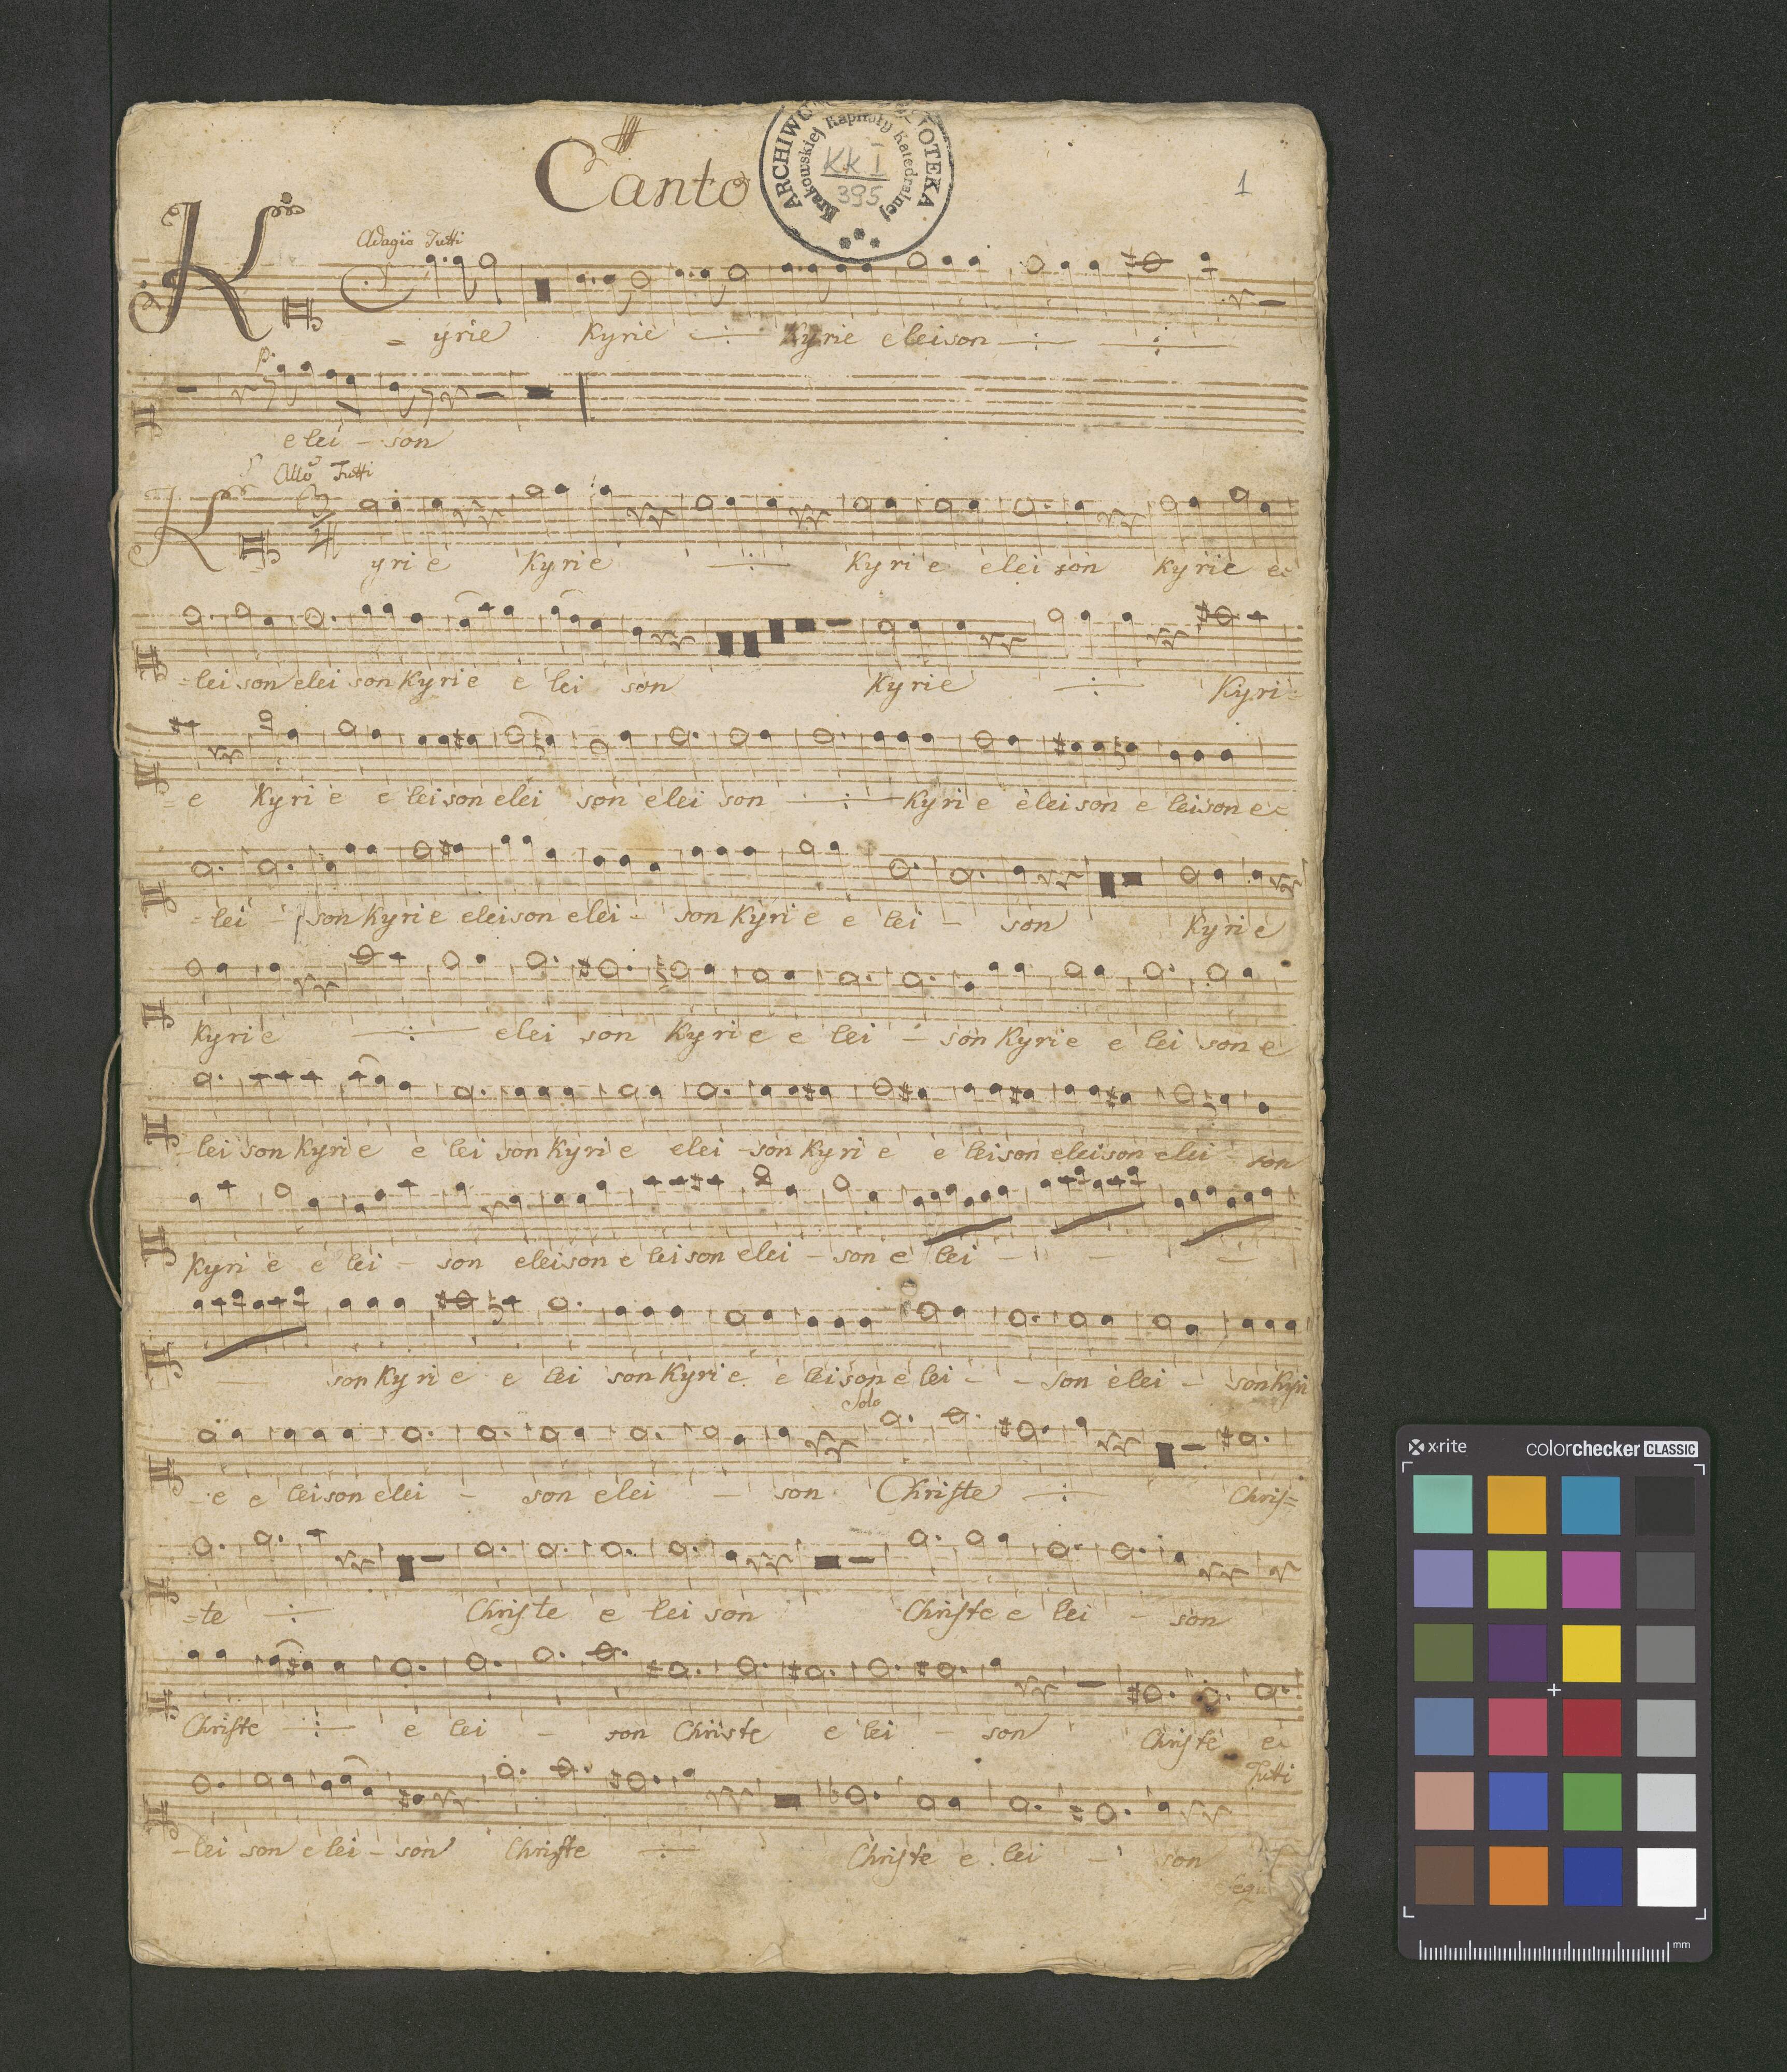 Canto
ARCHIWUM OTEKA
Krakowskiej Kapituły Katedralnej
Kk I
395
1
Adagio Tutti
K = yrie Kyrie ÷ Kyrie eleison ÷ ÷
p.
e lei - son
Allo Tutti
K yri e Kyrie ÷ Kyri e elei son Kyrie e=
=lei son elei son Kyri e e lei son Kyrie ÷ Kyri=
=e Kyri e e leison elei son elei son ÷ Kyri e eleison e leison e=
=lei - son Kyri e eleison elei - son Kyri e e lei - son Kyrie
Kyrie ÷ elei son Kyri e e lei - son Kyri e e lei son e
-lei son Kyri e e lei son Kyri e elei - son Kyri e e leison eleison elei - son
Kyri e e lei - son eleison e leison elei - son e lei - -
- son Kyri e e lei son Kyri e e leison e lei - - son elei - son Kyri
Solo
-e e leison elei - son elei - son Christe ÷ Chris=
=te ÷ Christe e lei son Christe e lei - son
Christe ÷ e lei - son Christe e lei - son Christe e=
Tutti
-lei son e lei - son Christe ÷ Christe e lei - son
x·rite colorchecker CLASSIC
mm